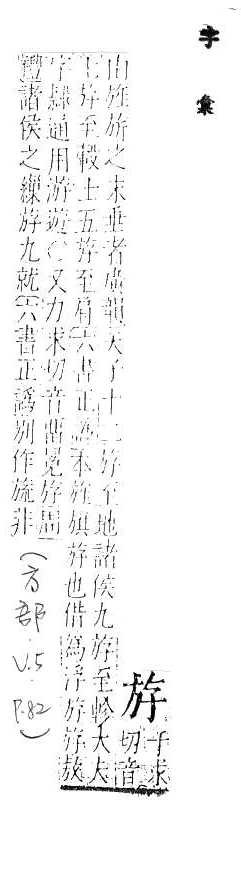 字彙
斿
于求
切音
由旌旂之末垂者廣韻天子十二斿至地諸侯九斿至軫大夫
七斿至轂士五斿至肩六書正譌本旌旗斿也借爲浮斿斿敖
字隸通用游遊○又力求切音畱冕斿周
禮諸侯之繅斿九就六書正譌別作旒非
(方部.V.5.P.82)